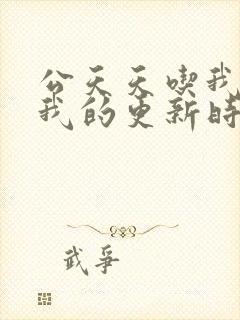 公天天喫我
我的更新時
武爭